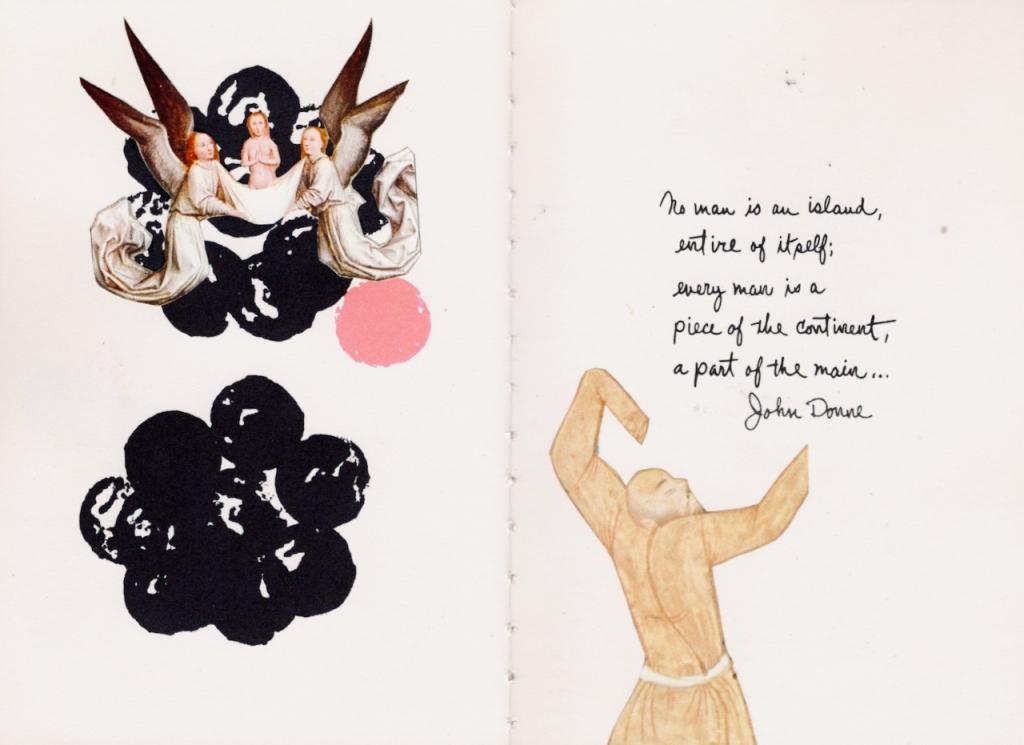 No man is an island,
entire of itself;
every man is a
piece of the continent,
a part of the main...
John Donne